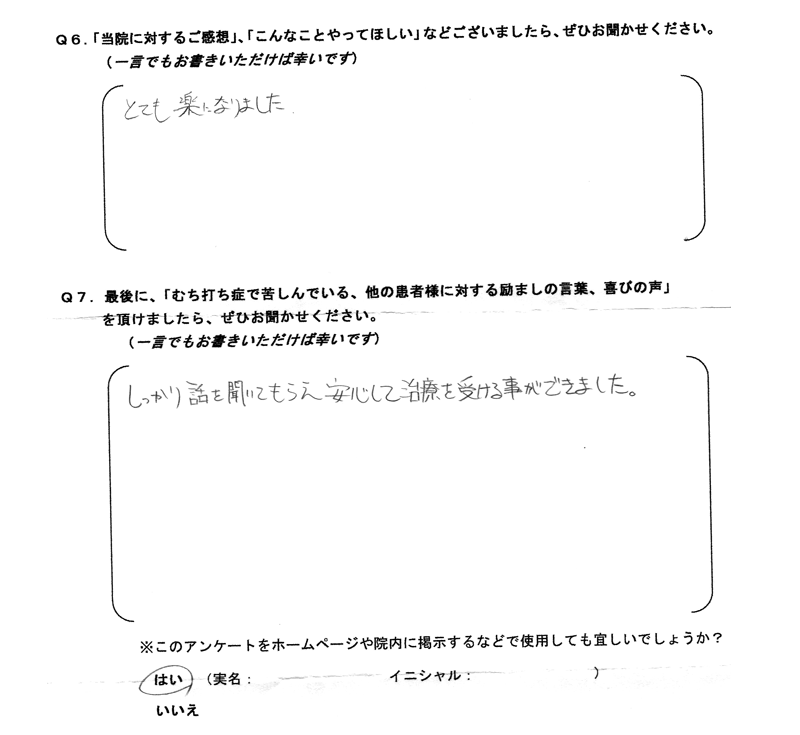 Q6.「当院に対するご感想」、「こんなことやってほしい」などございましたら、ぜひお聞かせください。
(一言でもお書きいただけば幸いです)
とても楽になりました
Q7. 最後に、「むち打ち症で苦しんでいる、他の患者様に対する励ましの言葉、喜びの声」
を頂けましたら、ぜひお聞かせください。
(一言でもお書きいただけば幸いです)
しっかり話を聞いてもらえ安心して治療を受ける事ができました。
※このアンケートをホームページや院内に掲示するなどで使用しても宜しいでしょうか?
はい (実名: イニシャル: )
いいえ